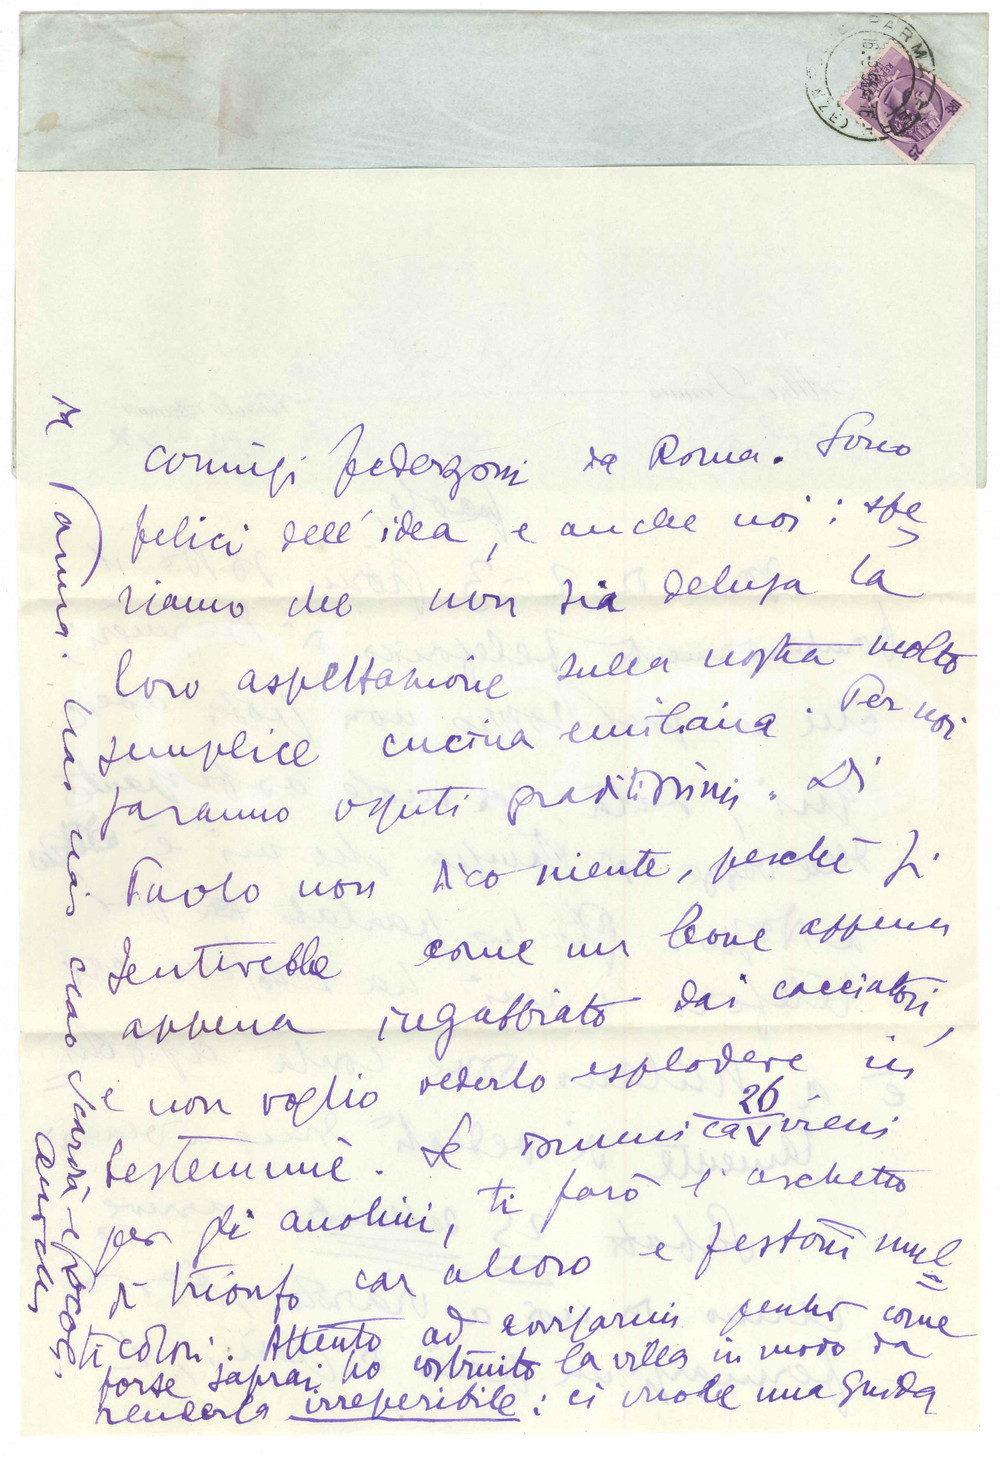 coniugi Federzoni da Roma. Sono
felici dell'idea, e anche noi: spe
riamo che non sia delusa la
loro aspettazione sulla nostra molto
semplice cucina emiliana. Per noi
saranno ospiti graditissimi. Di
Paolo non dico niente, perché si
sentirebbe come un leone appena
appena ingabbiato dai cacciatori,
e non voglio vederlo esplodere in
bestemmie. Se domenica 26 vieni
per gli anolini, ti farò l'archetto
di trionfo con alloro e festoni mul
ticolori. Attento ad avvisarmi perché come
forse saprai ho costruito la villa in modo da
renderla irreperibile: ci vuole una guida
Parma. Ciao mio caro